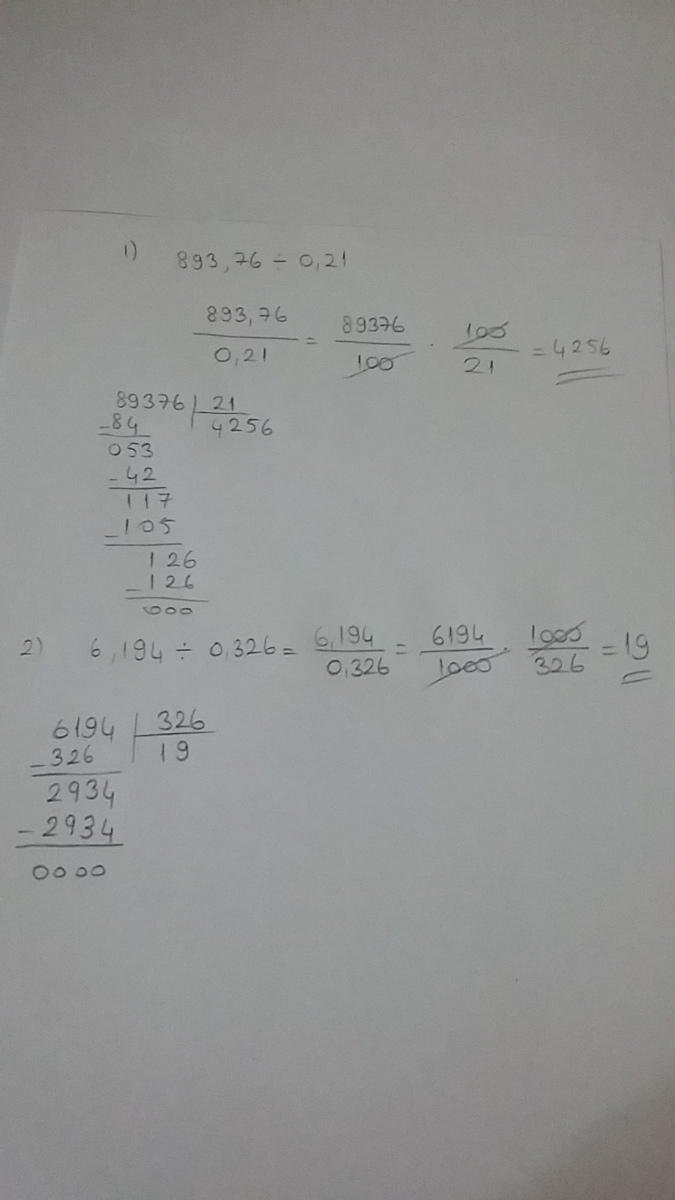 1) 893,76 ÷ 0,21
893,76 / 0,21 = 89376 / 100 . 100 / 21 = 4256
89376 | 21
-84 4256
053
-42
117
-105
126
-126
000
2) 6,194 ÷ 0,326 = 6,194 / 0,326 = 6194 / 1000 . 1000 / 326 = 19
6194 | 326
-326 19
2934
-2934
0000